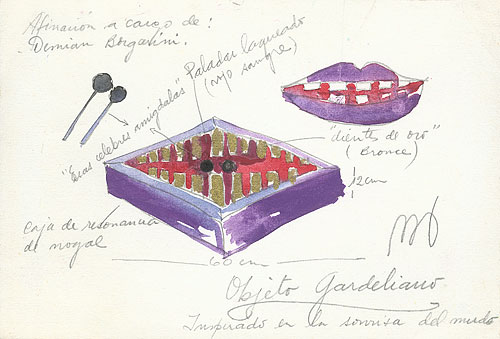 Afinación a cargo de:
Demian Borgarini.
Paladar laqueado
(rojo sangre)
"Esas célebres amígdalas"
"dientes de oro"
(Bronce)
12cm
caja de resonancia
de nogal
60 cm
Objeto Gardeliano
Inspirado en la sonrisa del mudo